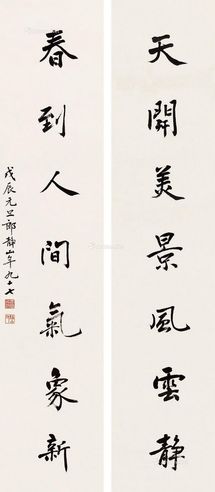 天開美景風雲静
春到人間氣象新
戊辰元旦郎静山年九十七